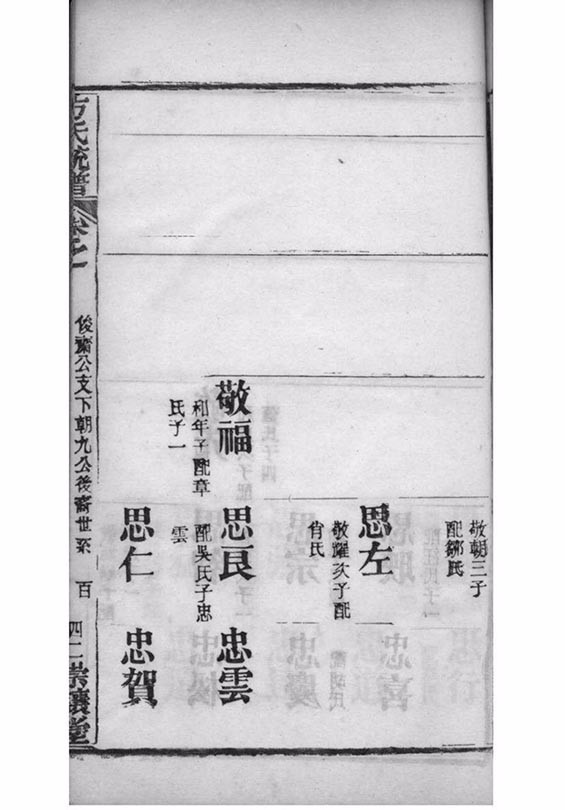 敬朝三子
配鄒氏
思左
敬耀次子配
肖氏
敬福
和年子配章
氏子一
思良
配吳氏子忠
雲
忠雲
思仁
忠賀
方氏統譜
卷之一
俊齋公支下朝九公後裔世系
百
四二
崇讓堂